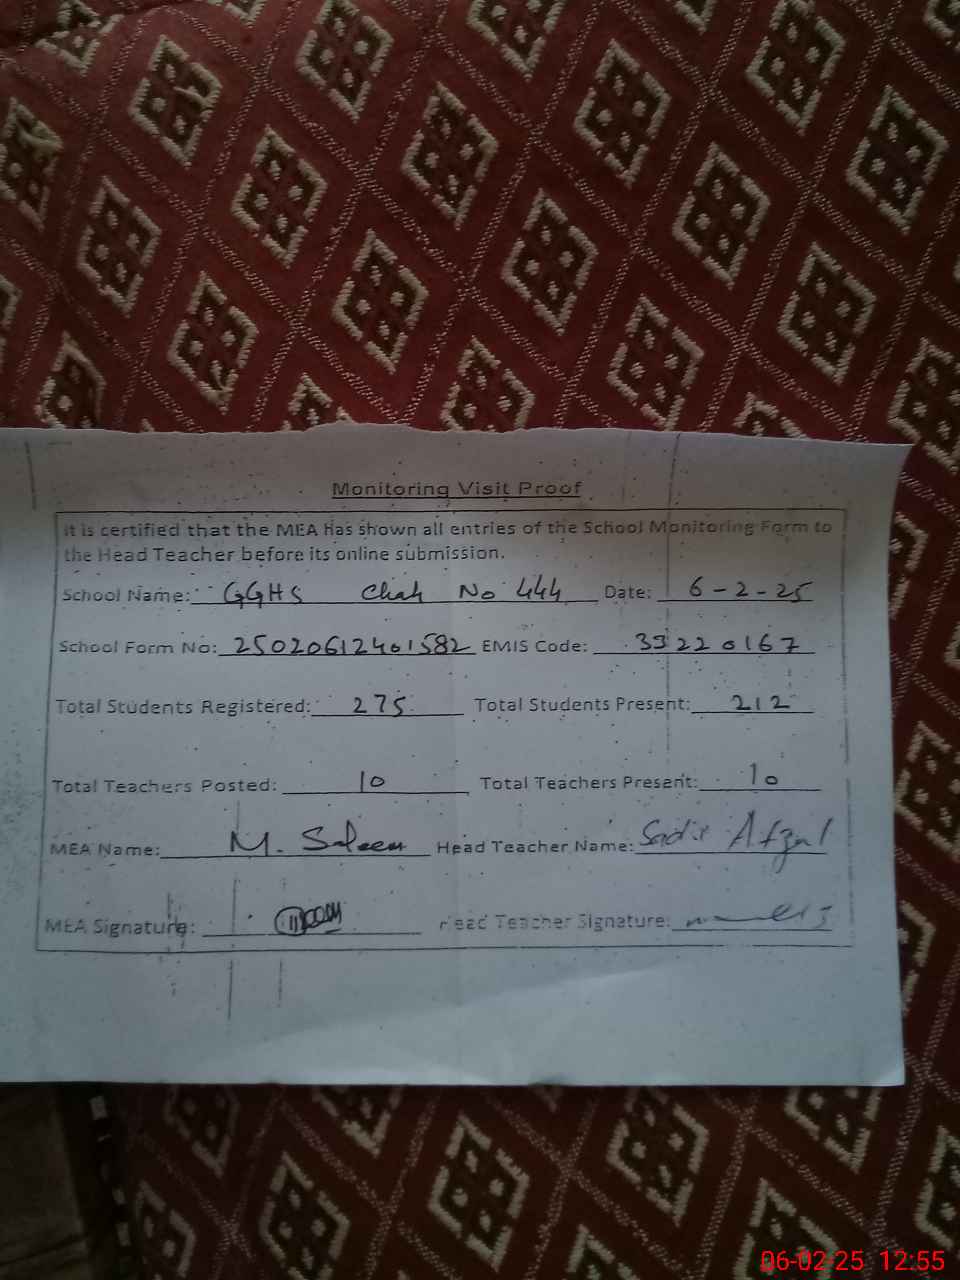 Monitoring Visit Proof
It is certified that the MEA has shown all entries of the School Monitoring Form to
the Head Teacher before its online submission.
School Name: GGHS Chak No 444 Date: 6-2-25
School Form No: 25020612401582 EMIS Code: 33220167
Total Students Registered: 275 Total Students Present: 212
Total Teachers Posted: 10 Total Teachers Present: 10
MEA Name: M. Saleem Head Teacher Name: Afzal
MEA Signature: Head Teacher Signature:
06-02-25 12:55